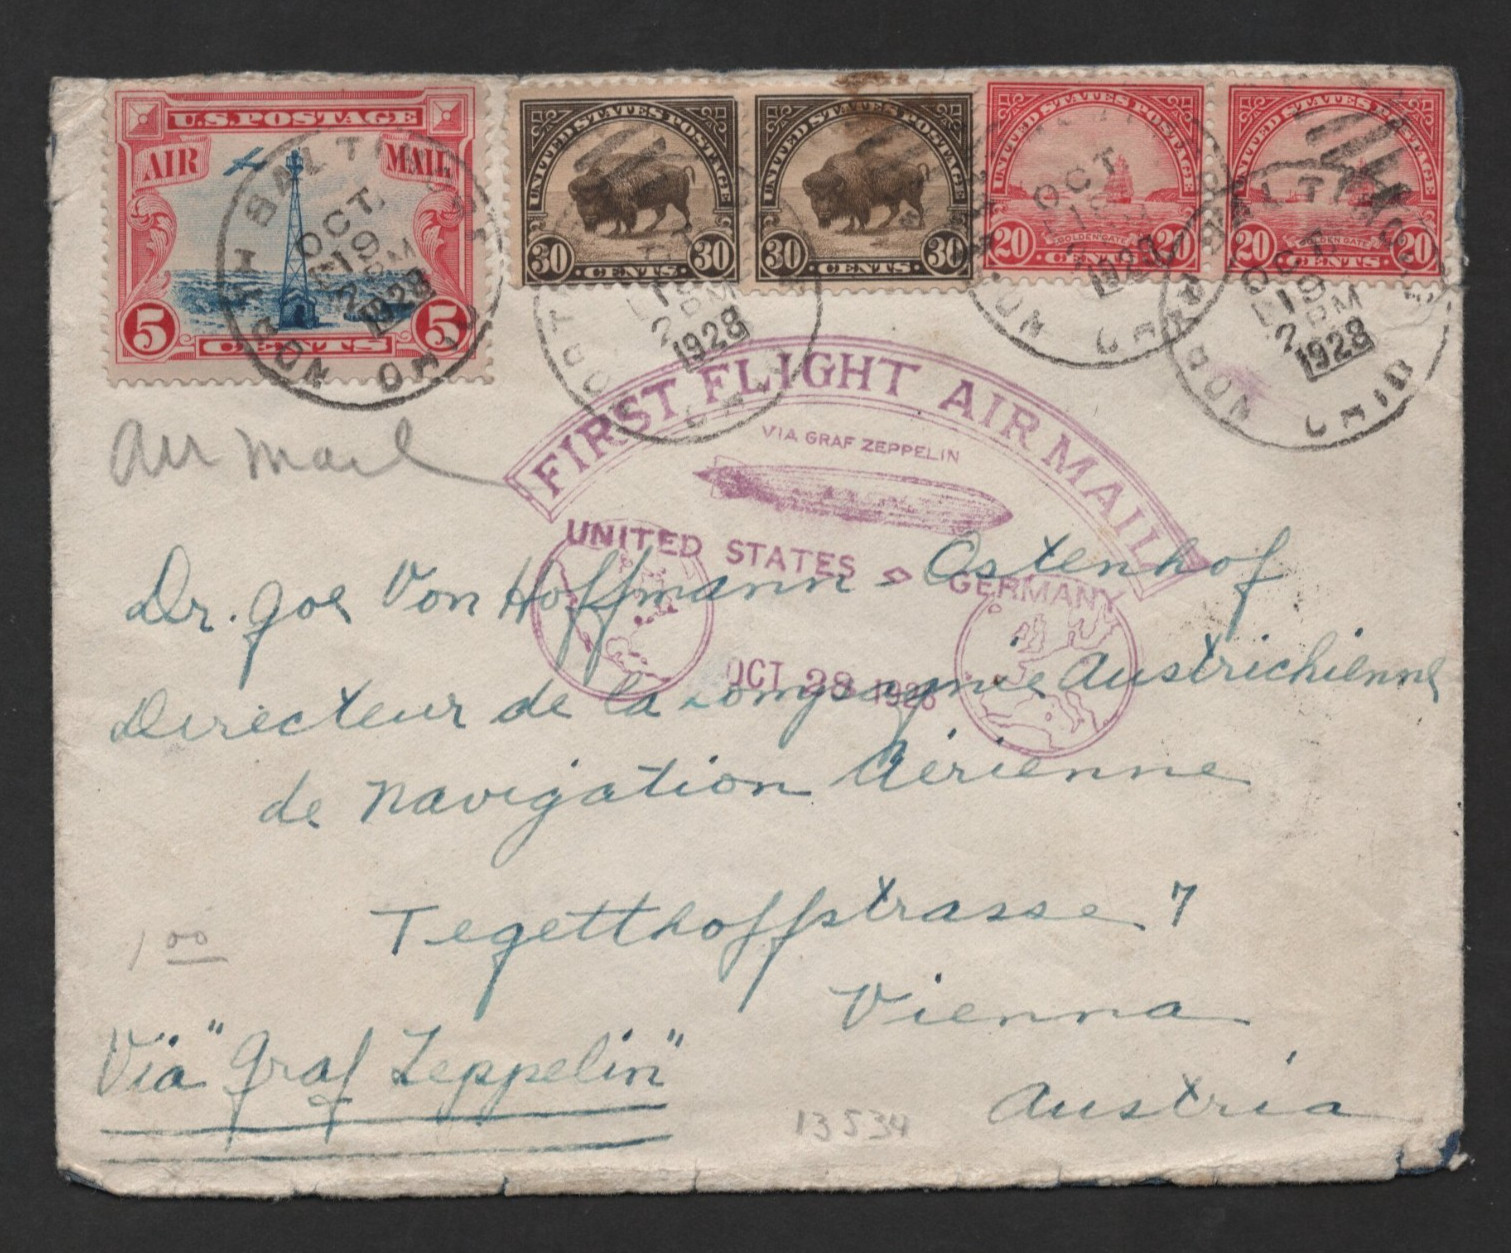 U.S. POSTAGE
AIR MAIL
5 CENTS 5
UNITED STATES POSTAGE
30 CENTS 30
UNITED STATES POSTAGE
30 CENTS 30
UNITED STATES POSTAGE
GOLDEN GATE
20 CENTS 20
UNITED STATES POSTAGE
GOLDEN GATE
20 CENTS 20
NORTH BALTIMORE
OCT
19
2 PM
1928
OHIO
OCT
19
2 PM
1928
OHIO
OCT
19
PM
1928
OHIO
NORTH BALTIMORE
OCT
19
2 PM
1928
OHIO
Air Mail
FIRST FLIGHT AIR MAIL
VIA GRAF ZEPPELIN
UNITED STATES GERMANY
OCT 28 1928
Dr. Joe Von Hoffmann - Ostenhof
Directeur de la Compagnie Austrichienne
de Navigation Aérienne
Tegetthoffstrasse 7
1 00
Vienna
Via "Graf Zeppelin"
Austria
13534